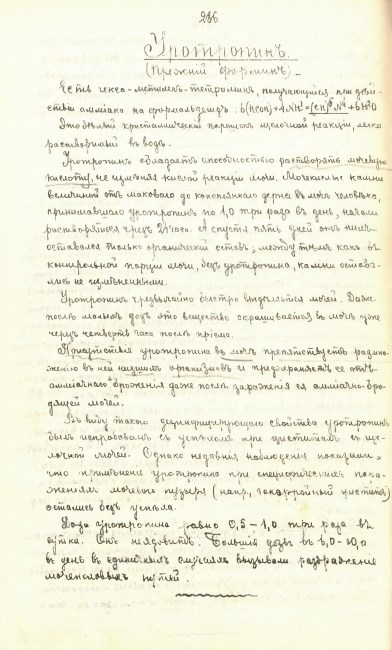 286
Уротропинъ.
(Прежній форминъ).
Есть гекса-метиленъ-тетраминъ, получающійся при дѣй-
ствіи амміака на формальдегидъ:
Это бѣлый кристаллическій порошокъ щелочной реакціи, легко
растворимый въ водѣ.
Уротропинъ обладаетъ способностью растворять мочевую
кислоту, не измѣняя кислой реакціи мочи. Мочекислые камни
величиной отъ маковаго до конопляного зерна въ мочѣ человѣка,
принимавшаго уротропинъ по 1,0 три раза въ день, начали
растворяться чрезъ часа. А спустя пять дней онъ
оставался только органическій остовъ; между тѣмъ какъ въ
контрольной порціи мочи, безъ уротропина, камни остава-
лись не измѣненными.
Уротропинъ чрезвычайно быстро выдѣляется мочей. Даже
послѣ малыхъ дозъ это вещество сказывается въ мочѣ уже
черезъ четверть часа послѣ пріема.
Присутствіе уротропина въ мочѣ препятствуетъ размно-
женію въ ней низшихъ организмовъ и предохраняетъ ее отъ
амміачнаго броженія даже послѣ зараженія ея амміачно-бро-
дящей мочей.
Въ виду такого дезинфицирующаго свойства уротропинъ
былъ испробованъ съ успѣхомъ при циститахъ съ ще-
лочной мочей. Однако недавнія наблюденія показали,
что примѣненіе уротропина при специфическихъ пора-
женіяхъ мочевого пузыря (напр., гонорройный циститъ)
остались безъ успѣха.
Доза уротропина равно 0,5–1,0 три раза въ
сутки. Онъ неядовитъ. Большія дозы въ 6,0–10,0
въ день въ единичныхъ случаяхъ вызывали раздраженіе
мочеполовыхъ путей.